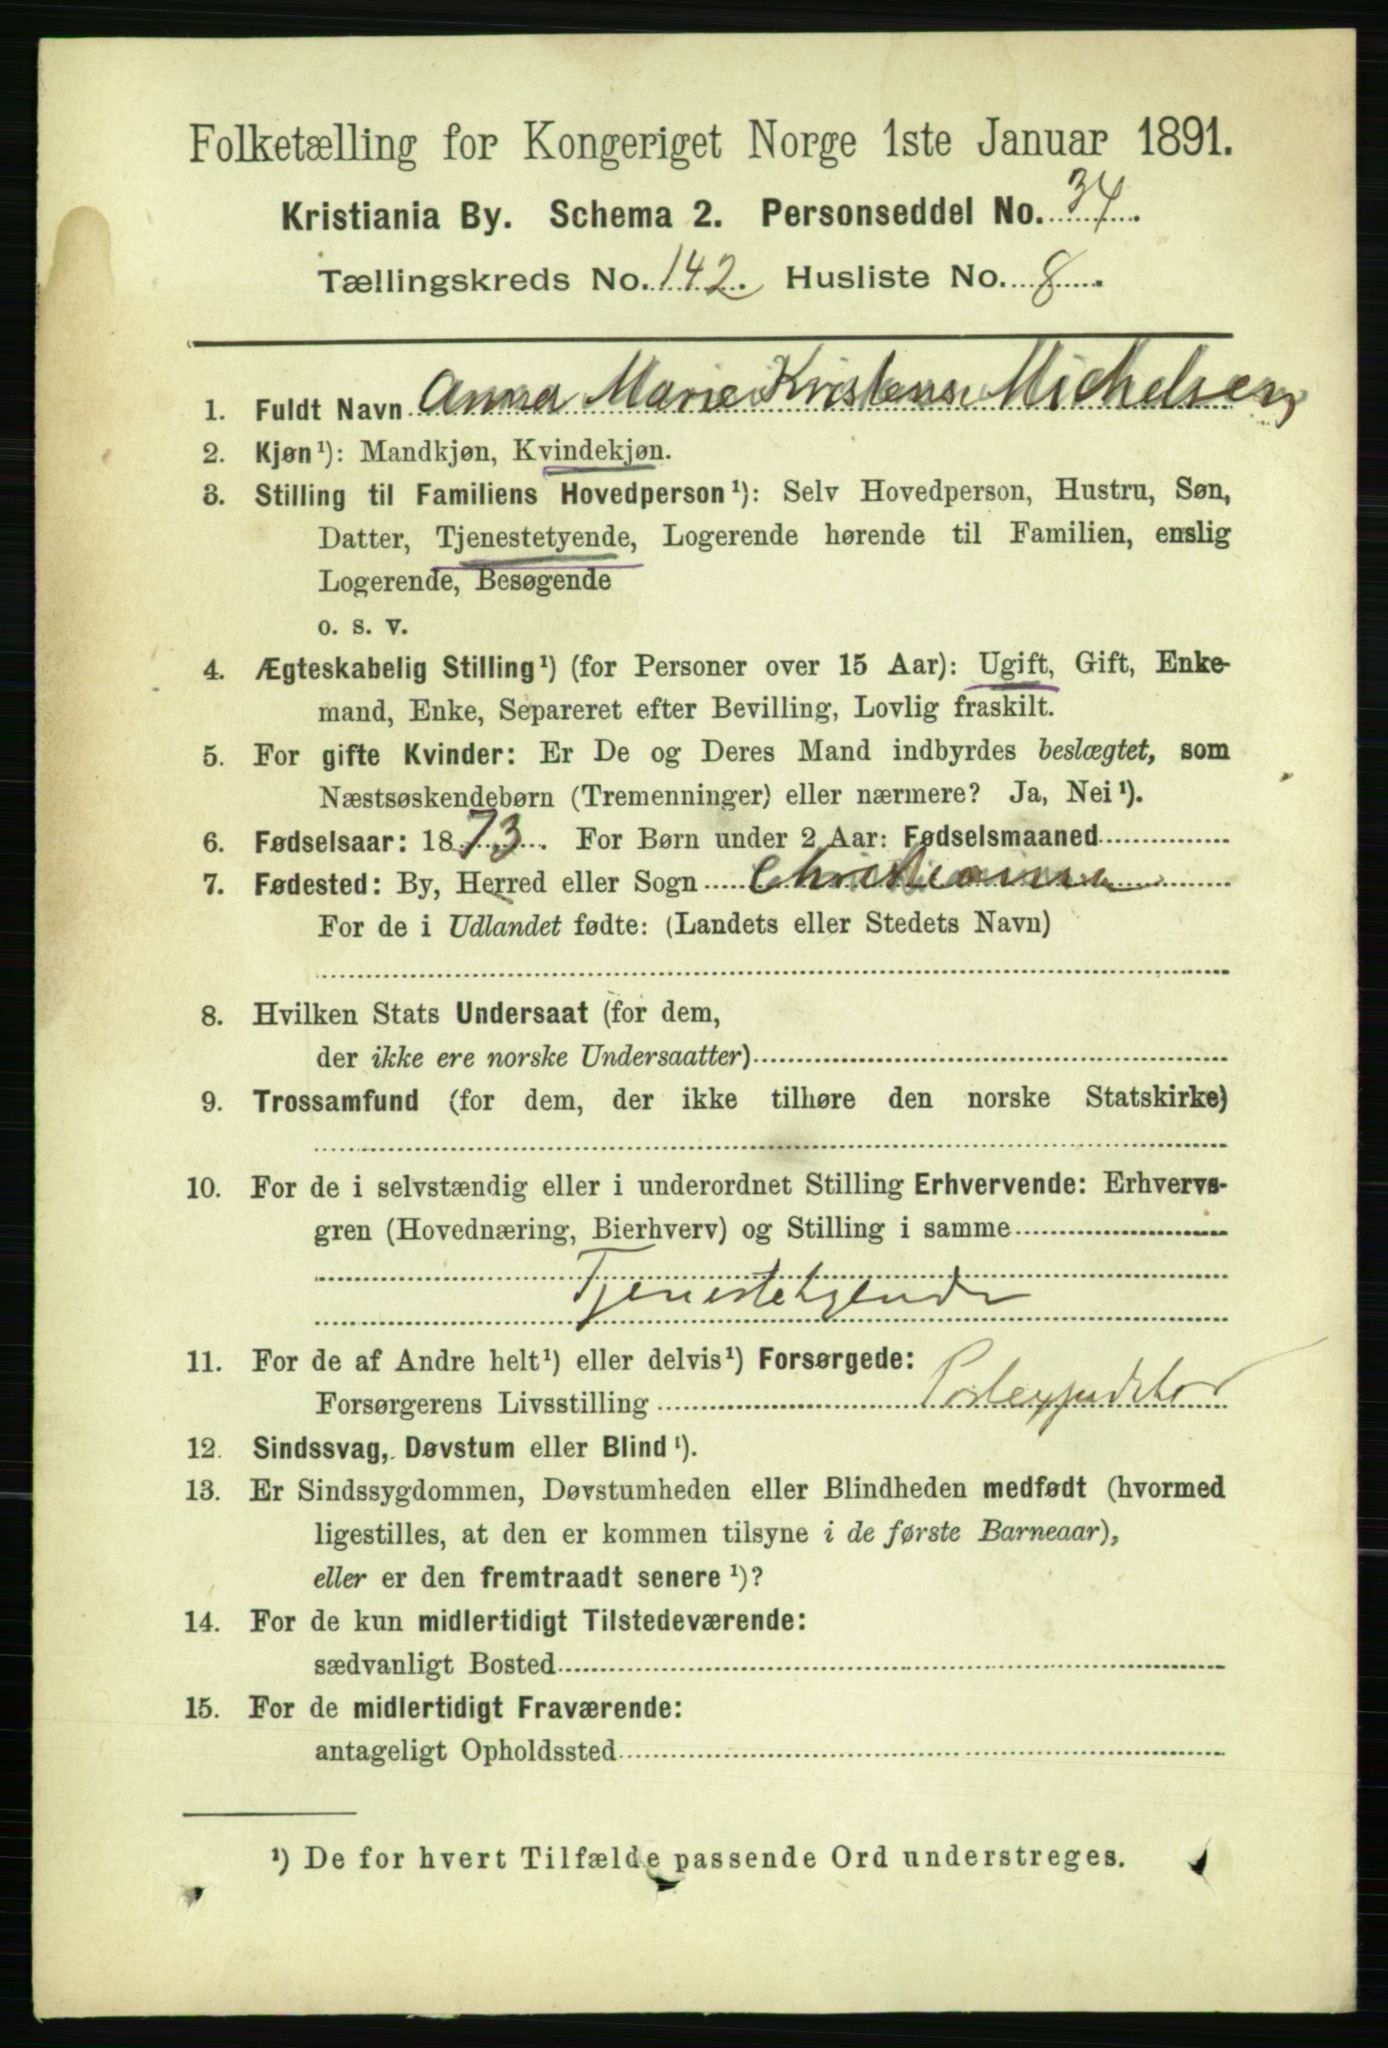 Folketælling for Kongeriget Norge 1ste Januar 1891.
Kristiania By. Schema 2. Personseddel No. 34.
Tællingskreds No. 142. Husliste No. 8.
1. Fuldt Navn Anna Marie Michelsen
2. Kjøn¹): Mandkjøn, Kvindekjøn.
3. Stilling til Familiens Hovedperson¹): Selv Hovedperson, Hustru, Søn,
Datter, Tjenestetyende, Logerende hørende til Familien, enslig
Logerende, Besøgende
o. s. v.
4. Ægteskabelig Stilling¹) (for Personer over 15 Aar): Ugift, Gift, Enke-
mand, Enke, Separeret efter Bevilling, Lovlig fraskilt.
5. For gifte Kvinder: Er De og Deres Mand indbyrdes beslægtet, som
Næstsøskendebørn (Tremenninger) eller nærmere? Ja, Nei¹).
6. Fødselsaar: 1873. For Børn under 2 Aar: Fødselsmaaned
7. Fødested: By, Herred eller Sogn Christiania
For de i Udlandet fødte: (Landets eller Stedets Navn)
8. Hvilken Stats Undersaat (for dem,
der ikke ere norske Undersaatter)
9. Trossamfund (for dem, der ikke tilhøre den norske Statskirke)
10. For de i selvstændig eller i underordnet Stilling Erhvervende: Erhvervs-
gren (Hovednæring, Bierhverv) og Stilling i samme
Tjenestetyende
11. For de af Andre helt¹) eller delvis¹) Forsørgede:
Forsørgerens Livsstilling Postexpeditør
12. Sindssvag, Døvstum eller Blind¹).
13. Er Sindssygdommen, Døvstumheden eller Blindheden medfødt (hvormed
ligestilles, at den er kommen tilsyne i de første Barneaar),
eller er den fremtraadt senere¹)?
14. For de kun midlertidigt Tilstedeværende:
sædvanligt Bosted
15. For de midlertidigt Fraværende:
antageligt Opholdssted
¹) De for hvert Tilfælde passende Ord understreges.